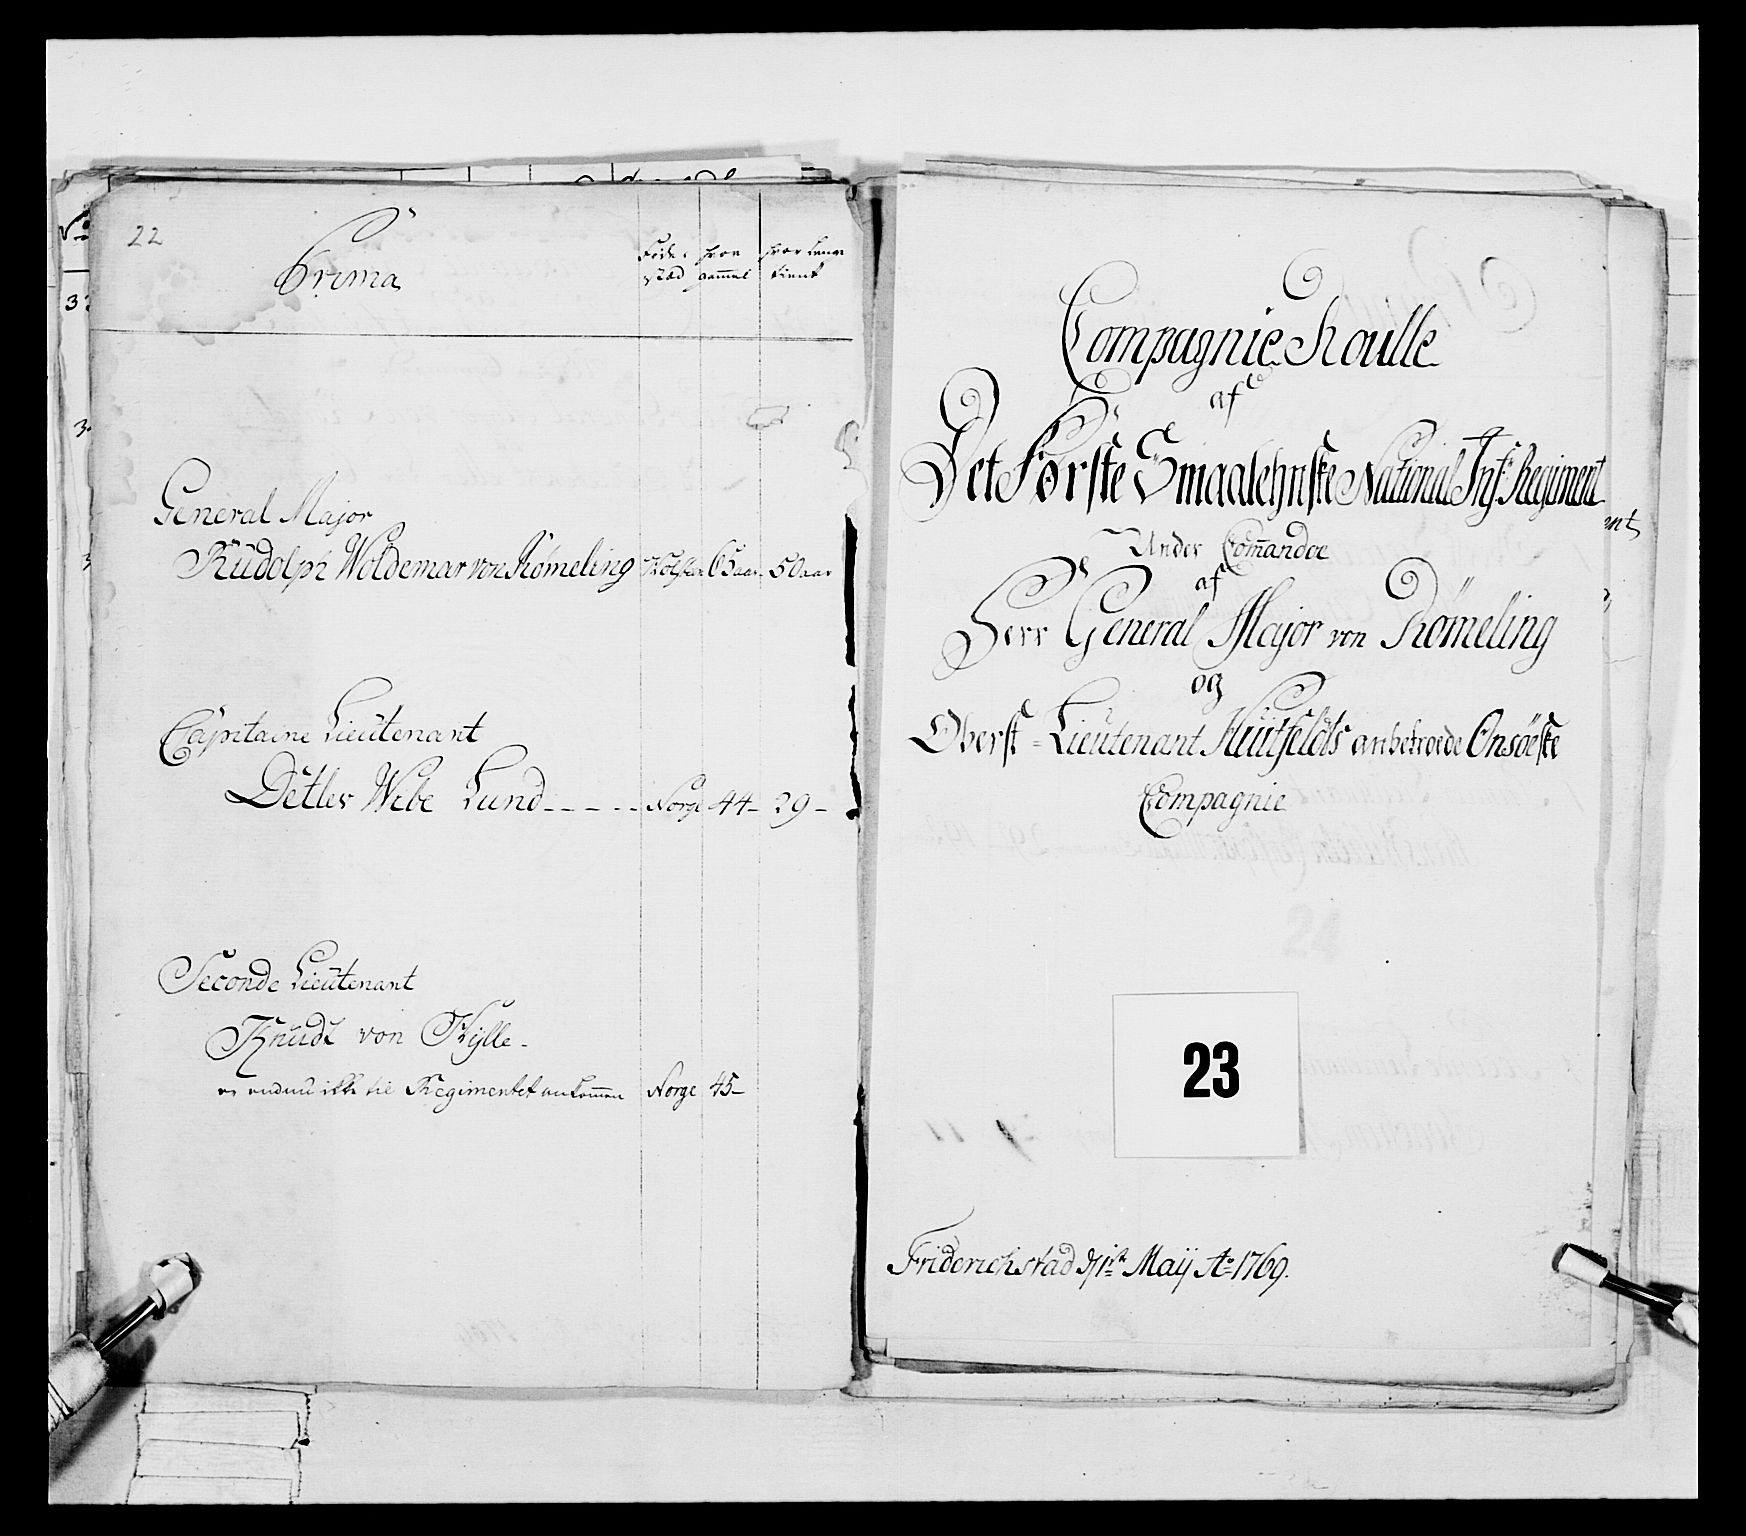 22
Prima
Føde- stæd
hvor gammel
hvor lenge tient
General Major
Rudolph Woldemar von Rømeling Holsten 65 aar 50 aar
Capitaine Lieutenant
Detlev Wibe Lund - - - - Norge 44- 29-
Seconde Lieutenant
Knudt von Kylle-
er endnu ikke til Regimentet ankommen Norge 45-
Compagnie Roulle
af
Det Første Smaalehnske National Inf: Regiment
Under Commandoe
af
Herr General Major von Rømeling
og
Oberst-Lieutenant Huitfeldts anbetroede Onsøeske
Compagnie
23
Friderichstad d 1ste Maij Ao 1769.